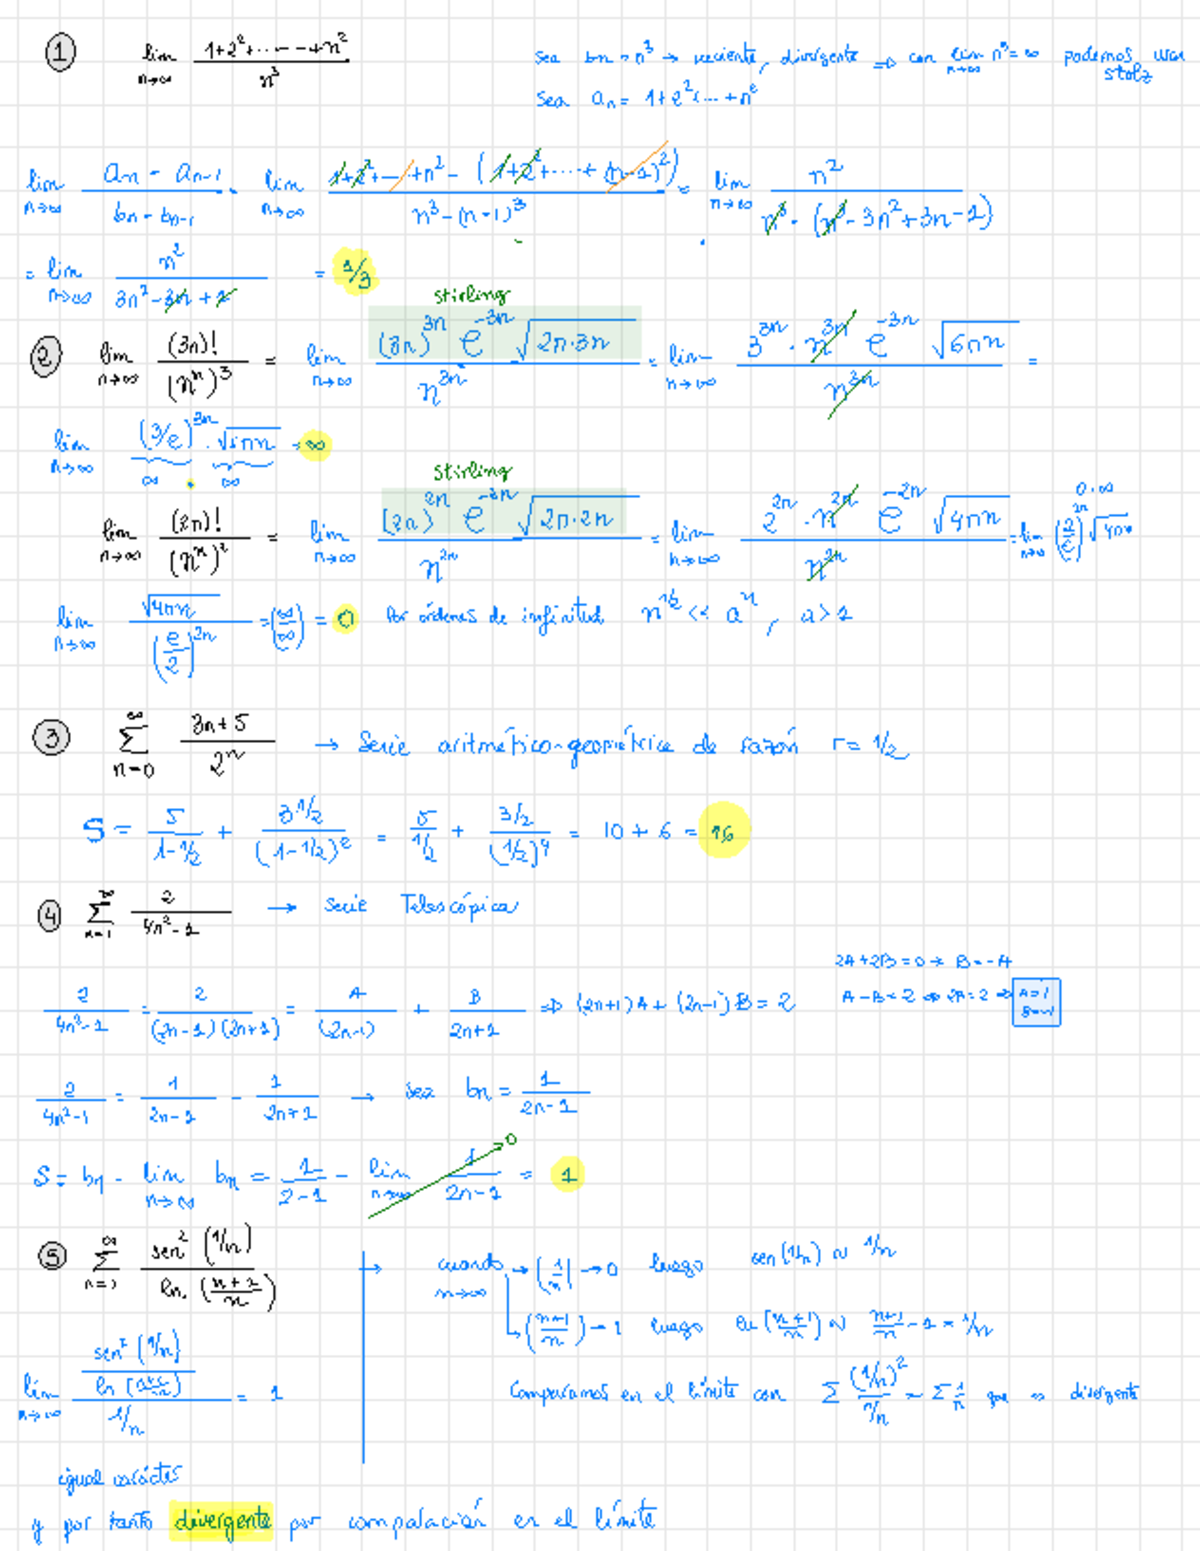 ① lim n→∞ (1+2²+⋯+n²)/n³
Sea bn = n³ → creciente, divergente ⇒ con lim n→∞ n³ = ∞ podemos usar stolz
Sea an = 1+2²+⋯+n²
lim n→∞ (an - an-1)/(bn - bn-1) = lim n→∞ (1+2²+⋯+n² - (1+2²+⋯+(n-1)²))/(n³-(n-1)³) = lim n→∞ n²/(n³ - (n³ - 3n² + 3n - 1))
= lim n→∞ n²/(3n² - 3n + 1) = 1/3
stirling
② lim n→∞ (3n)!/(nⁿ)³ = lim n→∞ (3n)³ⁿ e⁻³ⁿ √(2π·3n)/n³ⁿ = lim n→∞ 3³ⁿ · n³ⁿ e⁻³ⁿ √(6πn)/n³ⁿ =
lim n→∞ (3/e)³ⁿ · √(6πn) = ∞
∞ · ∞
stirling
lim n→∞ (2n)!/(nⁿ)² = lim n→∞ (2n)²ⁿ e⁻²ⁿ √(2π·2n)/n²ⁿ = lim n→∞ 2²ⁿ · n²ⁿ e⁻²ⁿ √(4πn)/n²ⁿ = lim n→∞ (2/e)²ⁿ √(4πn)
0·∞
lim n→∞ √(4πn)/(e/2)²ⁿ = (∞/∞) = 0 Por órdenes de infinitud n^(1/2) << aⁿ, a>1
③ ∑ n=0 ∞ (3n+5)/2ⁿ → Serie aritmético-geométrica de razón r = 1/2
S = 5/(1-1/2) + 3·1/2/(1-1/2)² = 5/(1/2) + (3/2)/(1/2)² = 10 + 6 = 16
④ ∑ n=1 ∞ 2/(4n²-1) → Serie Telescópica
2A+2B=0 → B=-A
2/(4n²-1) = 2/((2n-1)(2n+1)) = A/(2n-1) + B/(2n+1) ⇒ (2n+1)A + (2n-1)B = 2
A-B=2 ⇒ 2A=2 ⇒ A=1 B=-1
2/(4n²-1) = 1/(2n-1) - 1/(2n+1) → sea bn = 1/(2n-1)
S = b1 - lim n→∞ bn = 1/(2-1) - lim n→∞ 1/(2n-1) = 1
0
⑤ ∑ n=1 ∞ sen²(1/n)/ln((n+1)/n) → cuando n→∞ → (1/n) → 0 luego sen(1/n) ~ 1/n
((n+1)/n) → 1 luego ln((n+1)/n) ~ (n+1)/n - 1 = 1/n
lim n→∞ (sen²(1/n)/ln((n+1)/n))/(1/n) = 1
Comparamos en el límite con ∑ (1/n)²/(1/n) = ∑ 1/n que es divergente
igual carácter
y por tanto divergente por comparación en el límite